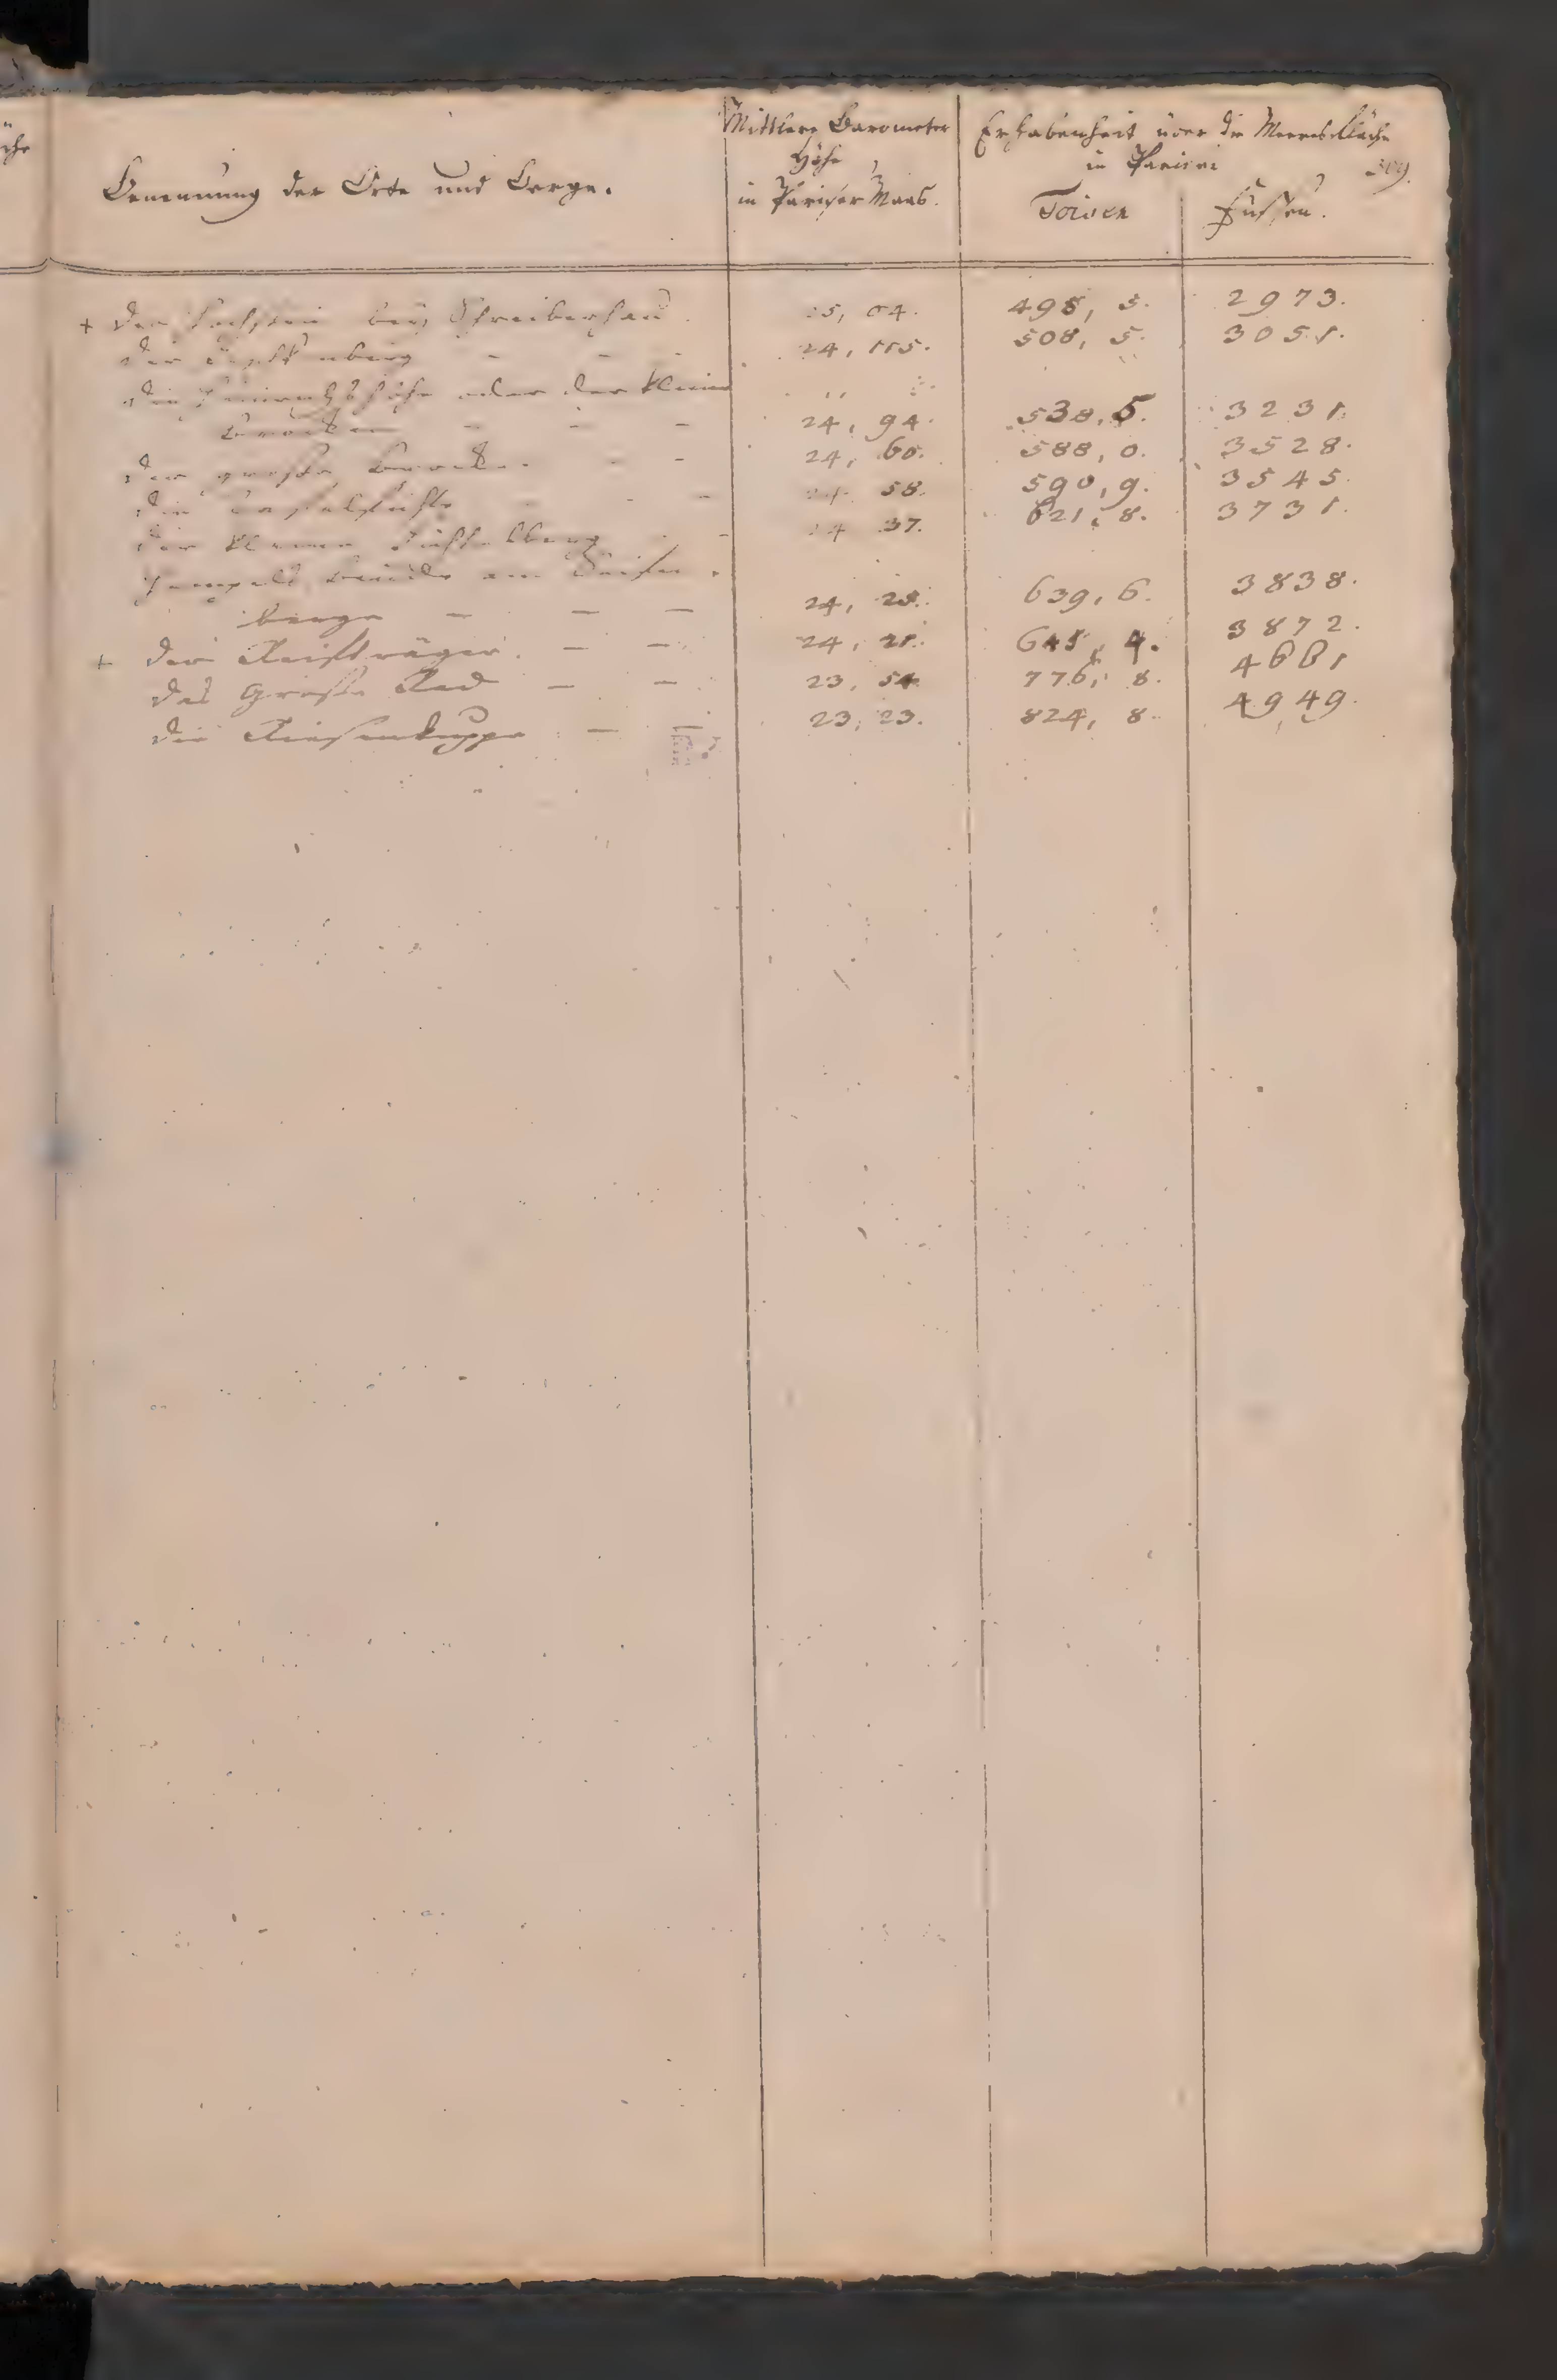 Benennung der Orte und Berge.
Mittlere Barometer
Höhe
in Pariser Maas.
Erhabenheit über die Meeresfläche
in Pariser
309.
Toisen
Füssen.
+ Der Hochstein bey Schreiberhau 25, 04. 495, 5. 2973.
Der 24, 115. 508, 5. 3051.
Die Heinrichshöhe oder der kleine
Brocken – – – 24, 94. 538,5. 3231.
Der große Brocken – – 24, 60. 588, 0. 3528.
Die Tafelfichte – – – 58. 590,9. 3545.
Der kleine Fichtelberg – – 24 37. 621,8. 3731.
Hempels Baude am
berge – – – 24, 25. 639,6. 3838.
+ Der Reifträger. – – 24, 21. 645, 4. 3872.
Das Große Rad – – 23, 54. 776, 8. 4661
Die Riesenkuppe – 23, 23. 824, 8. 4949.